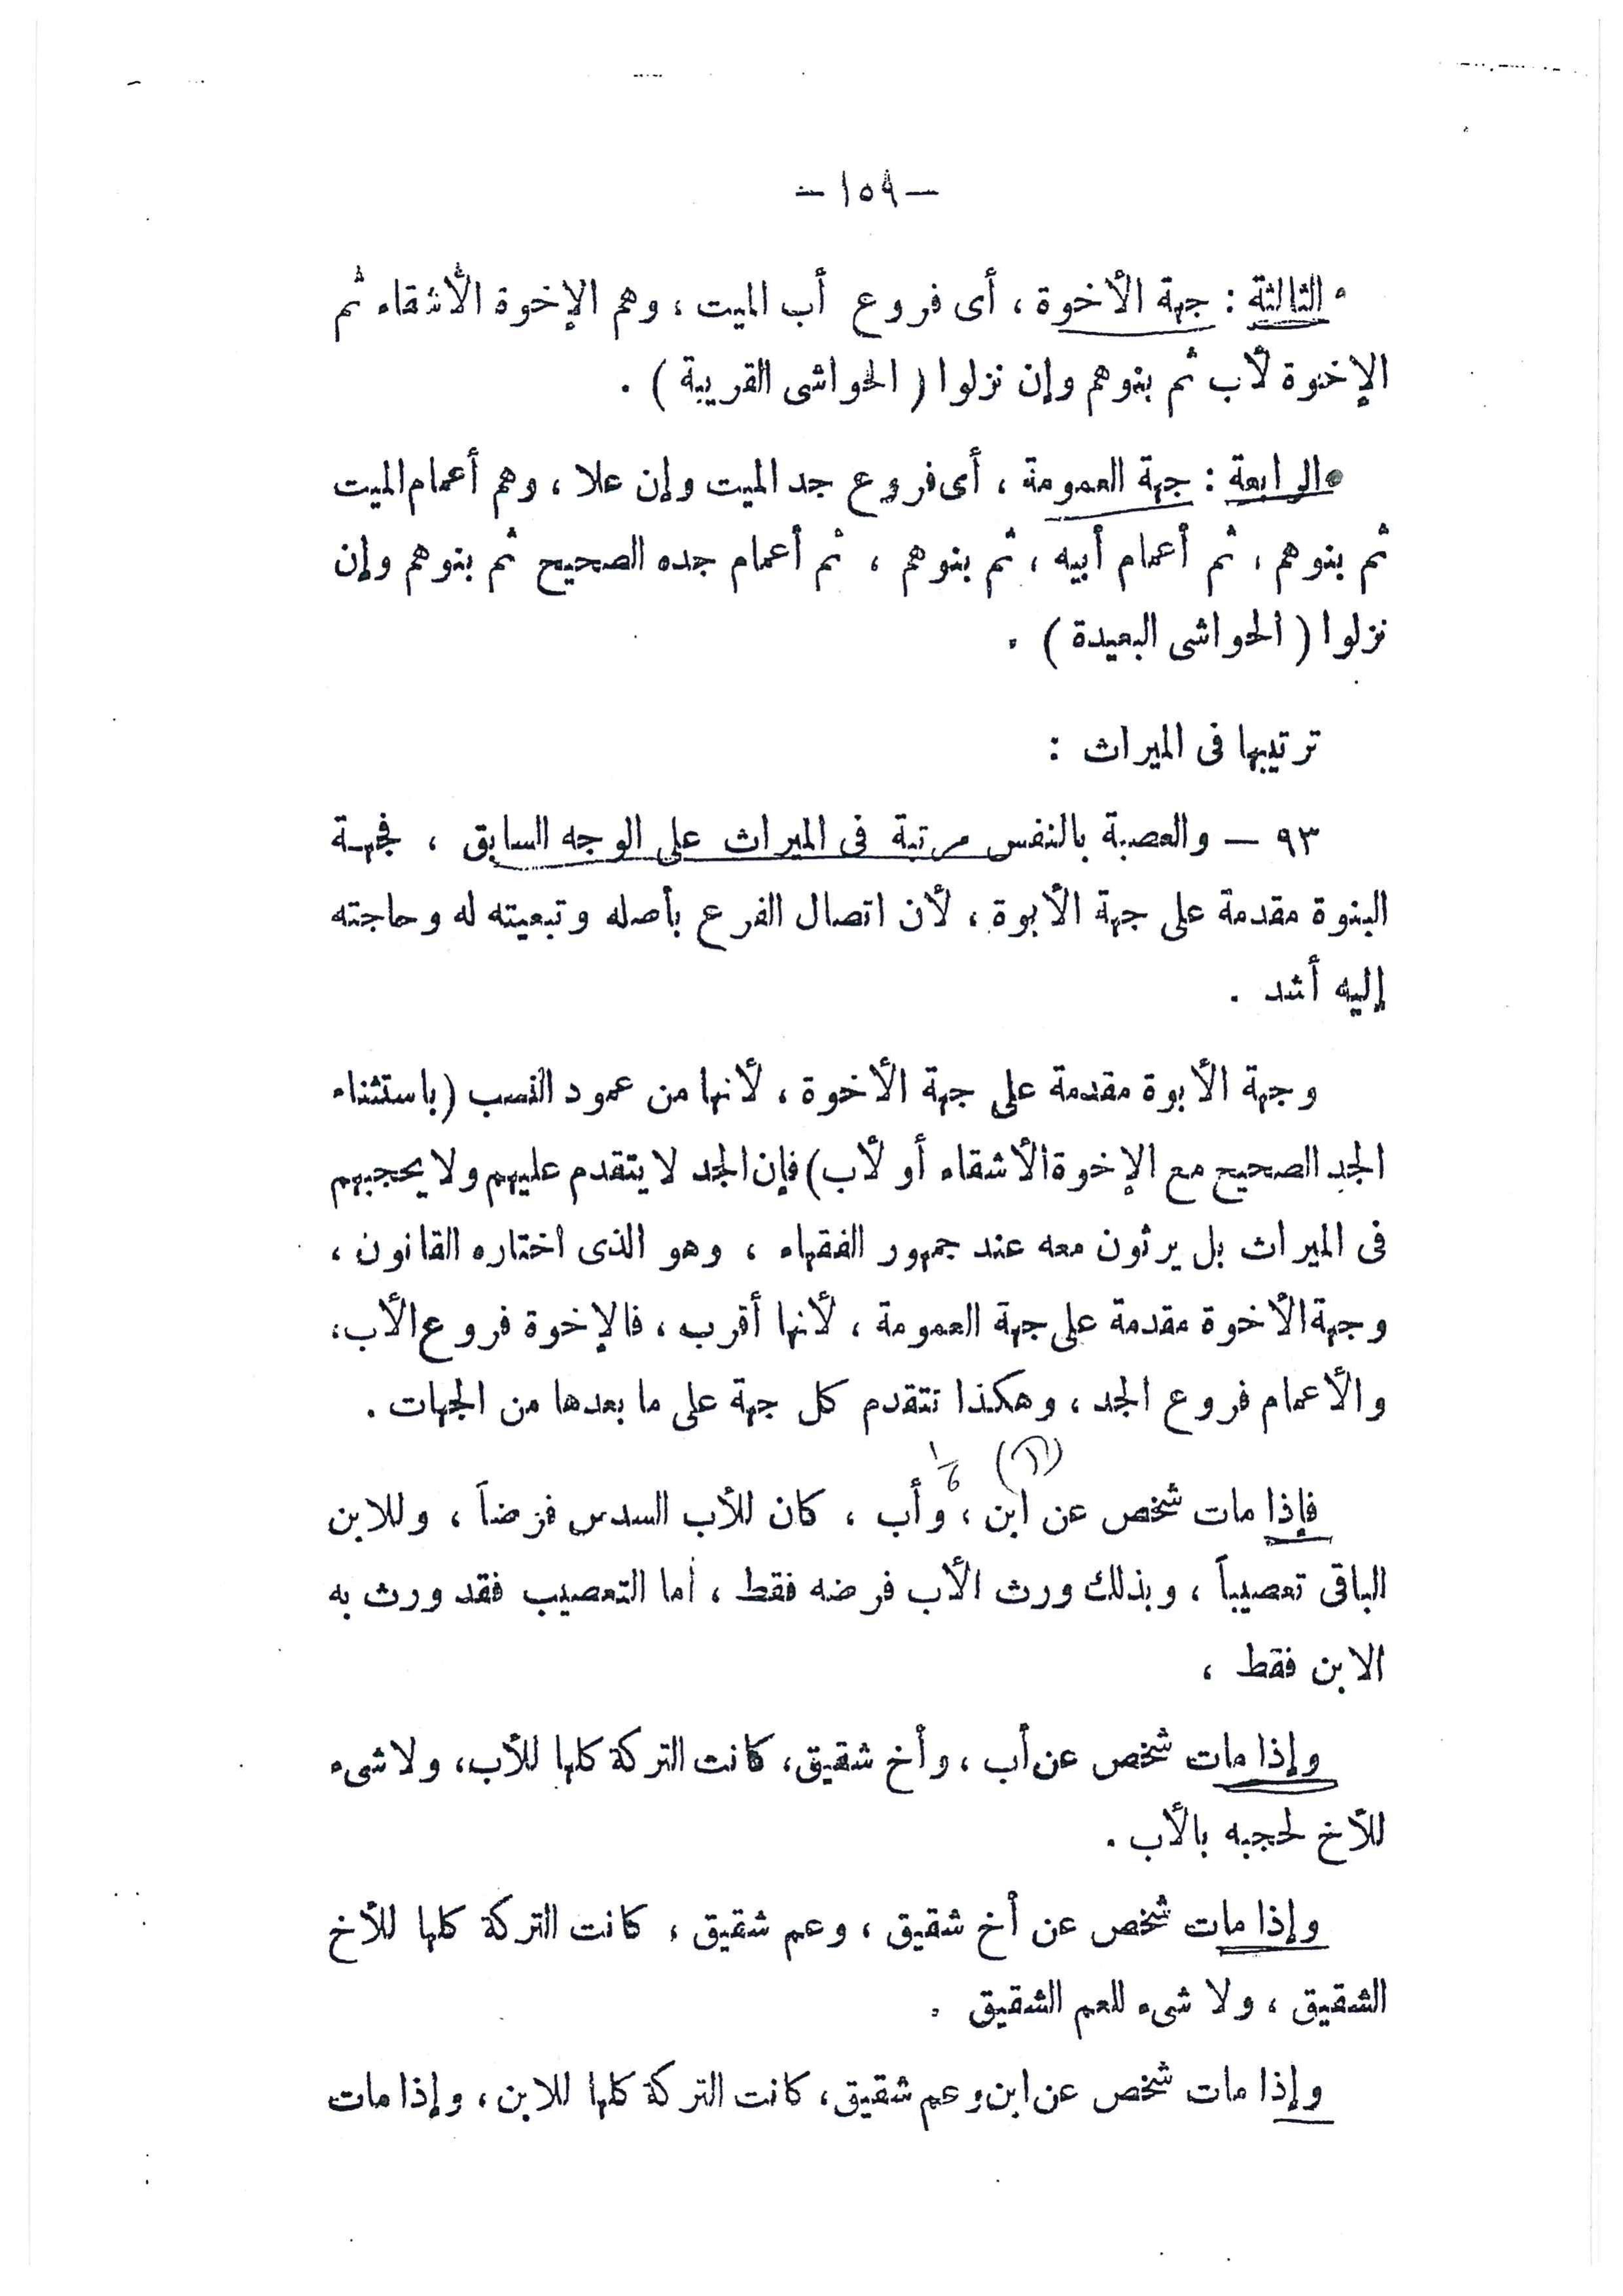 — ١٥٩ —
الثالثة : جهة الأخوة ، أى فروع أب الميت ، وهم الإخوة الأشقاء ثم
الإخوة لأب ثم بنوهم وإن نزلوا ( الحواشى القريبة ) .
الرابعة : جهة العمومة ، أى فروع جد الميت وإن علا ، وهم أعمام الميت
ثم بنوهم ، ثم أعمام أبيه ، ثم بنوهم ، ثم أعمام جده الصحيح ثم بنوهم وإن
نزلوا ( الحواشى البعيدة ) .
ترتيبها فى الميراث :
٩٣ — والعصبة بالنفس مرتبة فى الميراث على الوجه السابق ، فجهة
البنوة مقدمة على جهة الأبوة ، لأن اتصال الفرع بأصله وتبعيته له وحاجته
إليه أشد .
وجهة الأبوة مقدمة على جهة الأخوة ، لأنها من عمود النسب (باستثناء
الجد الصحيح مع الإخوة الأشقاء أو لأب) فإن الجد لا يتقدم عليهم ولا يحجبهم
فى الميراث بل يرثون معه عند جمهور الفقهاء ، وهو الذى اختاره القانون ،
وجهة الأخوة مقدمة على جهة العمومة ، لأنها أقرب ، فالإخوة فروع الأب،
والأعمام فروع الجد ، وهكذا تتقدم كل جهة على ما بعدها من الجهات .
١/٦
فإذا مات شخص عن ابن ، وأب ، كان للأب السدس فرضاً ، وللابن
الباقى تعصيباً ، وبذلك ورث الأب فرضه فقط ، أما التعصيب فقد ورث به
الابن فقط ،
وإذا مات شخص عن أب ، وأخ شقيق، كانت التركة كلها للأب، ولا شىء
للأخ لحجبه بالأب .
وإذا مات شخص عن أخ شقيق ، وعم شقيق ، كانت التركة كلها للأخ
الشقيق ، ولا شىء للعم الشقيق .
وإذا مات شخص عن ابن وعم شقيق، كانت التركة كلها للابن ، وإذا مات